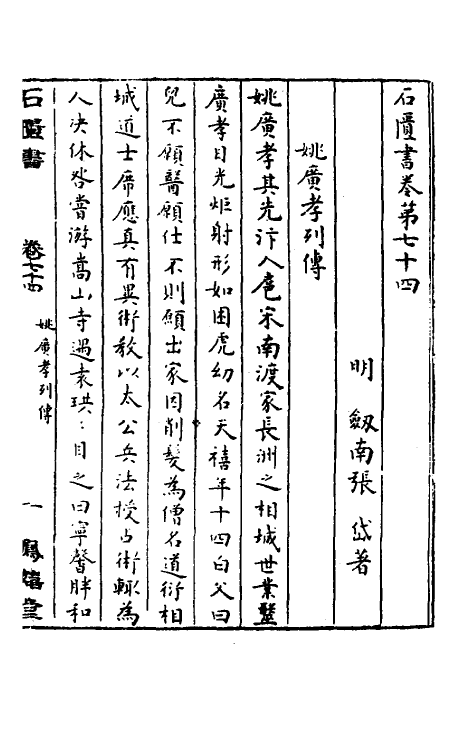 石匱書卷第七十四
明 劔南張 岱著
姚廣孝列傳
姚廣孝其先汴人扈宋南渡家長洲之相城世業醫
廣孝目光炬射形如困虎幼名天禧年十四白父曰
兒不願醫願仕不則願出家因削髮為僧名道衍相
城道士席應真有異術教以太公兵法授占術輒為
人决休咎嘗游嵩山寺遇袁珙：目之曰寧馨胖和
石匱書 卷七十四 姚廣孝列傳 一 鳳嬉堂